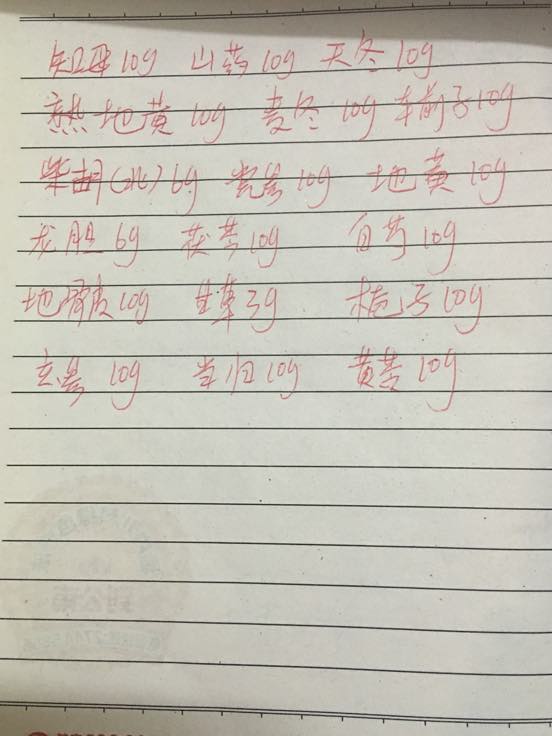 知母10g 山药10g 天冬10g
熟地黄10g 麦冬10g 车前子10g
柴胡(北)6g 党参10g 地黄10g
龙胆6g 茯苓10g 白芍10g
地骨皮10g 甘草3g 栀子10g
玄参10g 当归10g 黄芩10g